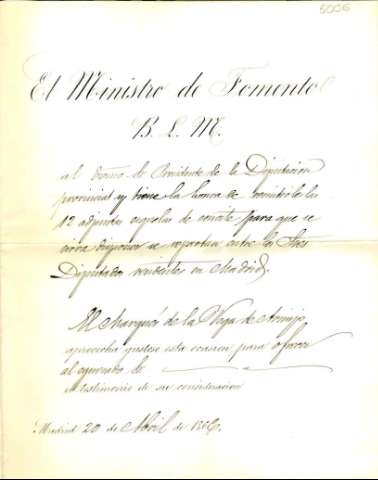 5006
El Ministro de Fomento
B. L. M.
al Excmo Sr Presidente de la Diputacion
provincial y tiene la honra de remitirle las
12 adjuntas esquelas de convite para que se
sirva disponer se repartan entre los Sres
Diputados residentes en Madrid.
El Marqués de la Vega de Armijo
aprovecha gustoso esta ocasion para ofrecer
al espresado Sr
el testimonio de su consideracion
Madrid 20 de Abril de 1866.